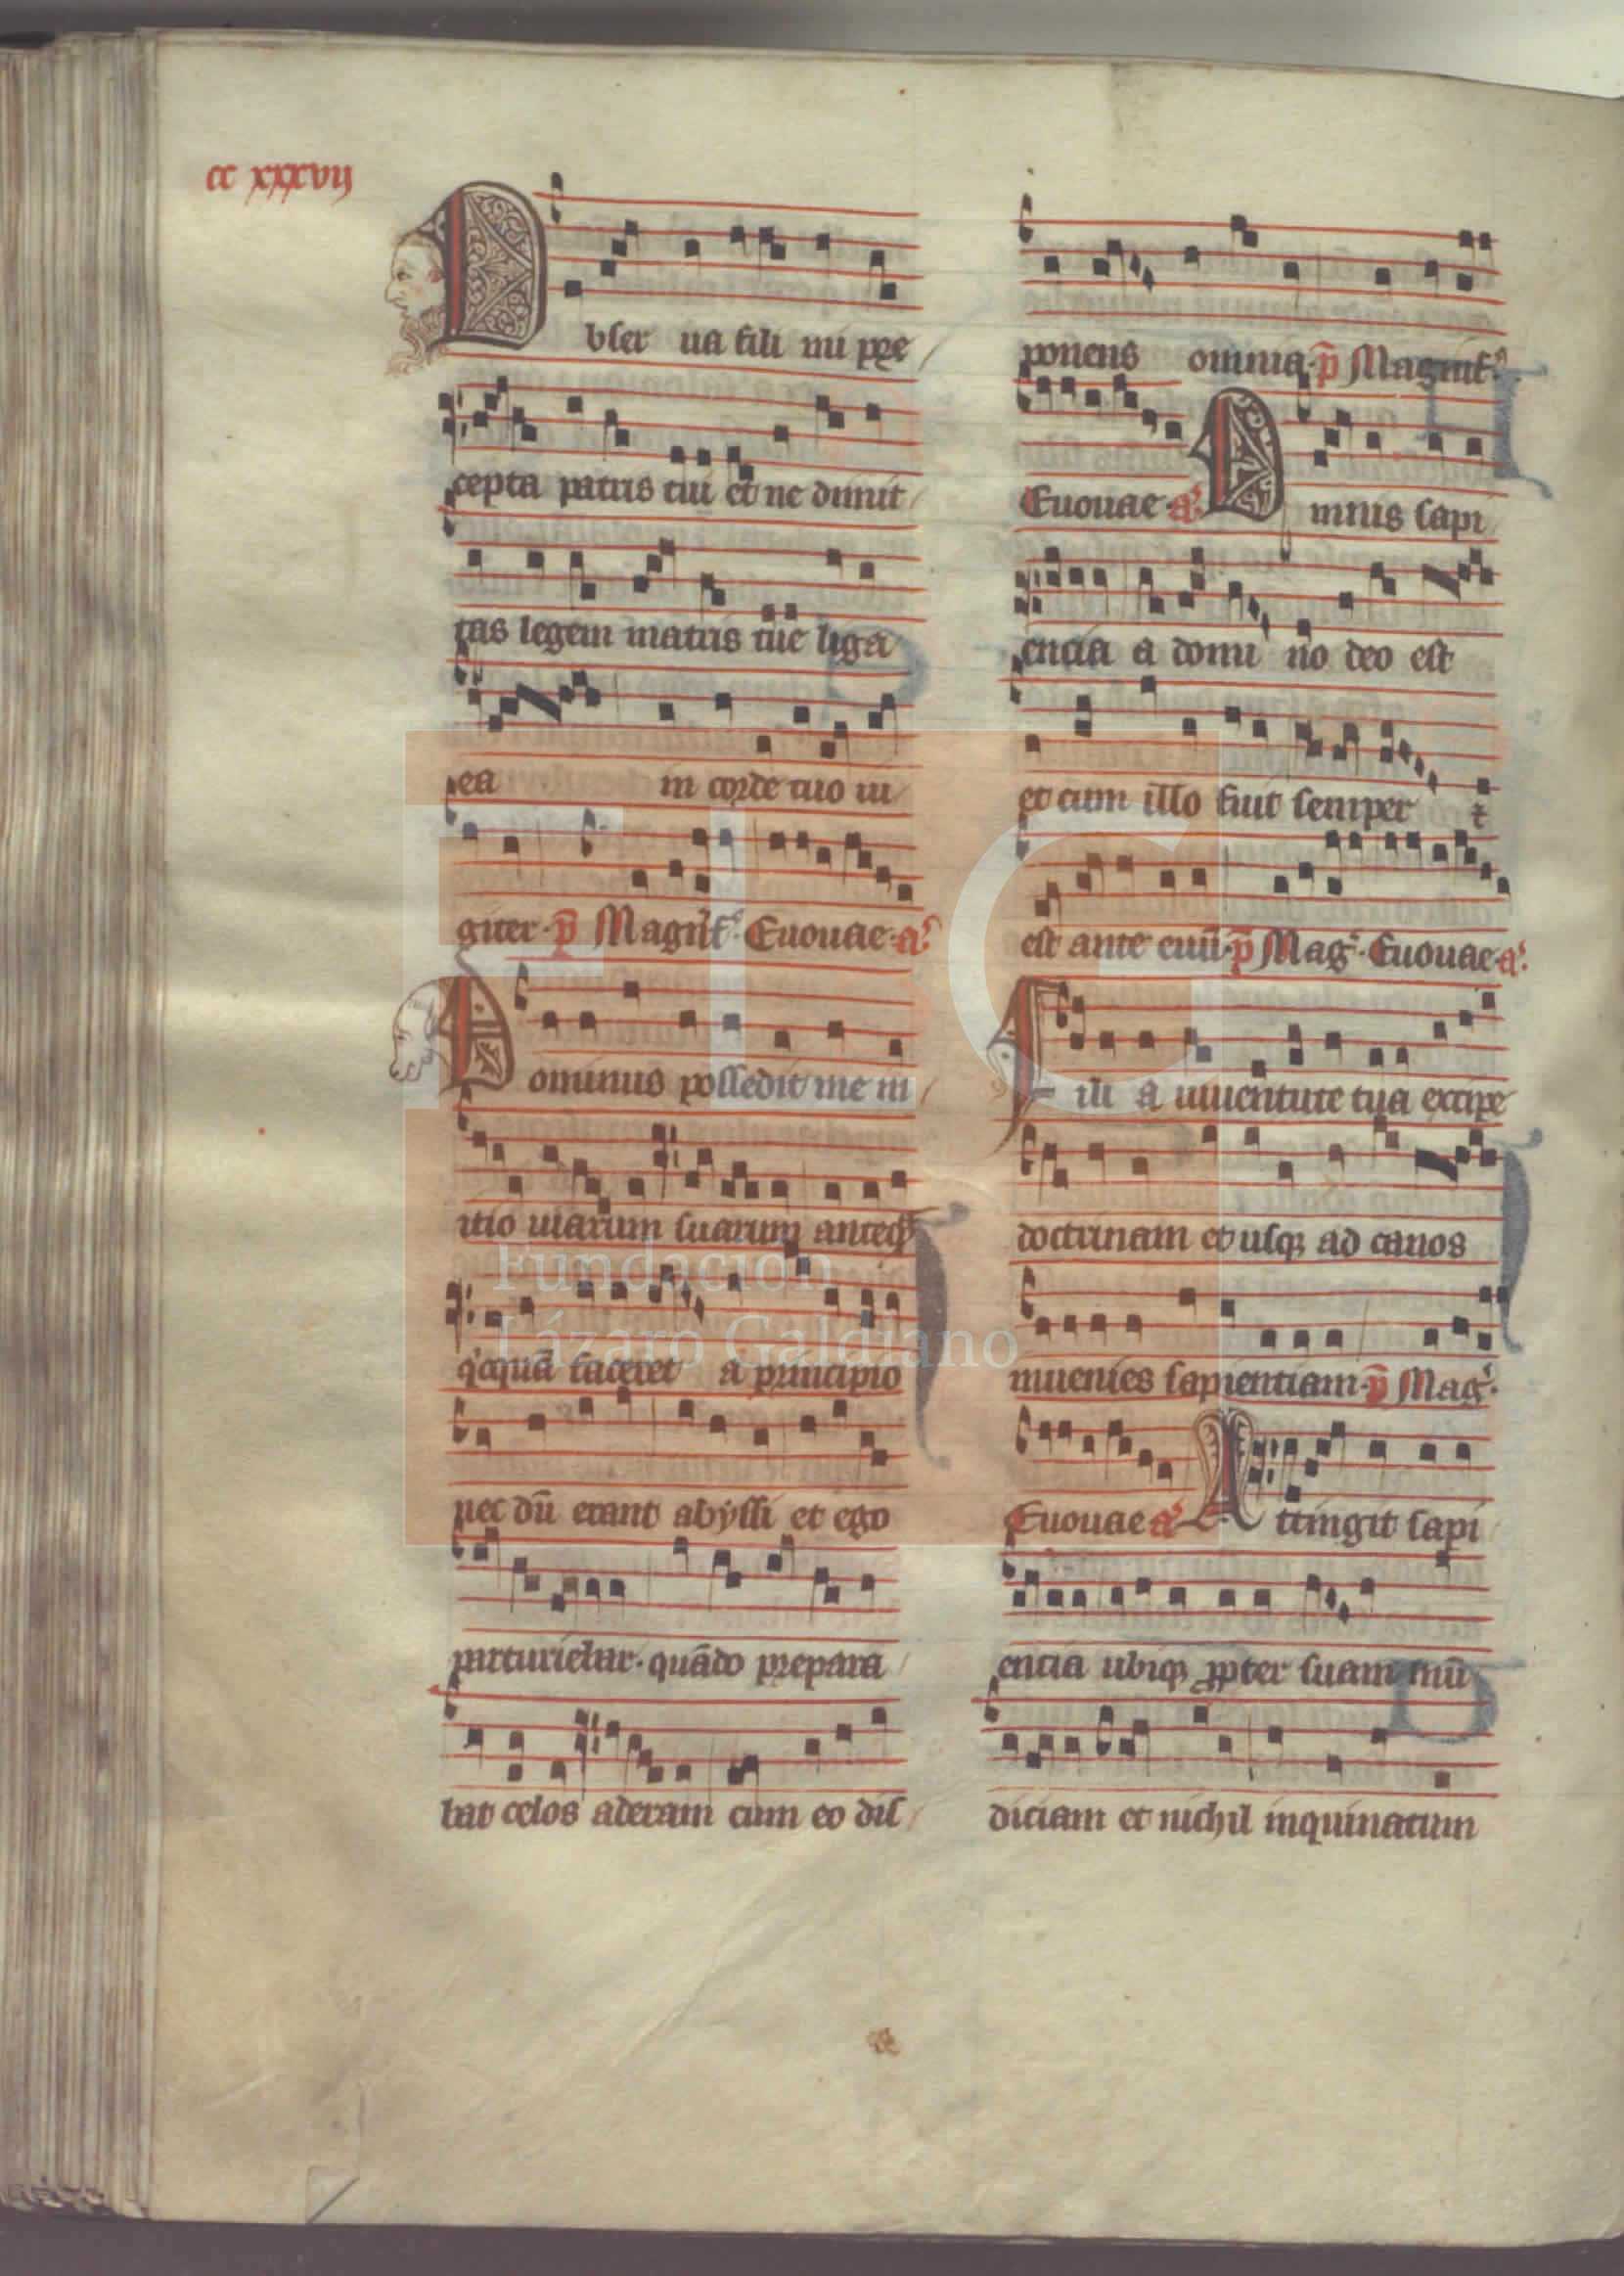 cc xxxvij
Obser ua fili mi pre
cepta patris tui et ne dimit
tas legem matris tue liga
ea in corde tuo iu
giter. p̄ Magnif. Euouae. a.
Dominus possedit me in
itio uiarum suarum anteq̄
q̇cquā faceret a principio
nec dū erant abyssi et ego
parturiebar. quādo prepara
bat celos aderam cum eo dis
ponens omnia. p̄ Magnif.
Euouae. a. Omnis sapi
encia a domi no deo est
et cum illo fuit semper et
est ante euū. p̄ Mag. Euouae. a.
Fili a iuuentute tua excipe
doctrinam et usq; ad canos
inuenies sapientiam. p̄ Mag.
Euouae a. Attingit sapi
encia ubiq; ꝓpter suam mū
diciam et nichil inquinatum
FLG
Fundación
Lázaro Galdiano